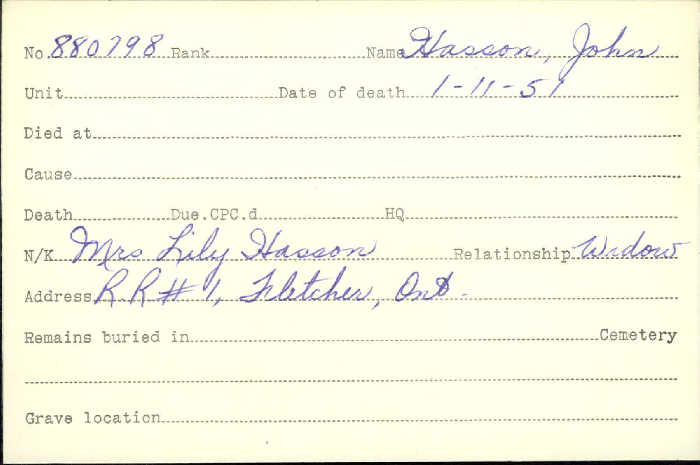 No. 880798 Rank Name Hasson, John
Unit Date of death 1-11-51
Died at
Cause
Death Due.CPC.d HQ
N/K Mrs Lily Hasson Relationship Widow
Address R.R #1, Fletcher, Ont.
Remains buried in Cemetery
Grave location